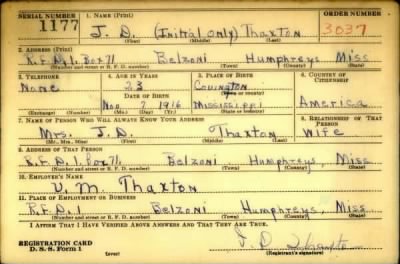 SERIAL NUMBER 1. NAME (Print) ORDER NUMBER
1177 J. D. (Initial only) Thaxton 3037
(First) (Middle) (Last)
2. ADDRESS (Print)
R.F.D.1, Box 71 Belzoni Humphreys Miss
(Number and street or R. F. D. number) (Town) (County) (State)
3. TELEPHONE 4. AGE IN YEARS 5. PLACE OF BIRTH 6. COUNTRY OF CITIZENSHIP
None 23 Covington
DATE OF BIRTH (Town or county)
Nov. 7 1916 Mississippi America
(Mo.) (Day) (Yr.) (State or country)
7. NAME OF PERSON WHO WILL ALWAYS KNOW YOUR ADDRESS 8. RELATIONSHIP OF THAT PERSON
Mrs. J.D. Thaxton Wife
(Mr., Mrs., Miss) (First) (Middle) (Last)
9. ADDRESS OF THAT PERSON
R.F.D.1, Box 71, Belzoni Humphreys, Miss
(Number and street or R. F. D. number) (Town) (County) (State)
10. EMPLOYER'S NAME
V. M. Thaxton
11. PLACE OF EMPLOYMENT OR BUSINESS
R.F.D. 1 Belzoni Humphreys, Miss
(Number and street or R. F. D. number) (Town) (County) (State)
I AFFIRM THAT I HAVE VERIFIED ABOVE ANSWERS AND THAT THEY ARE TRUE.
REGISTRATION CARD J. D. Thaxton
D. S. S. Form 1 (over) (Registrant's signature)